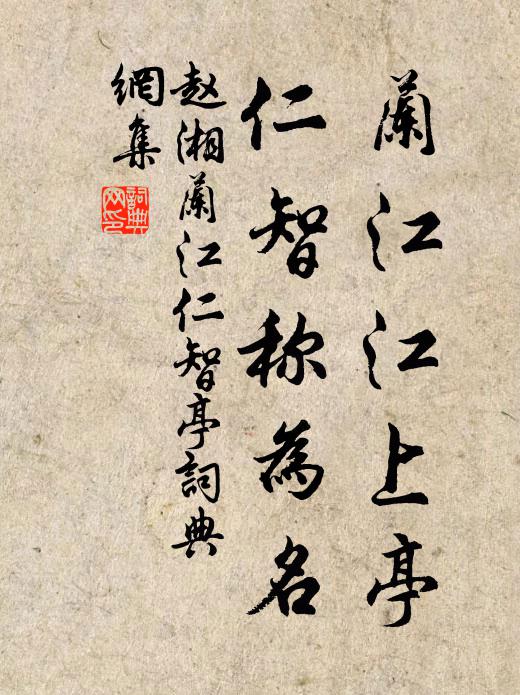 蘭江江上亭
仁智称為名
赵湘蘭江仁智亭詞典
網集
詞典网印